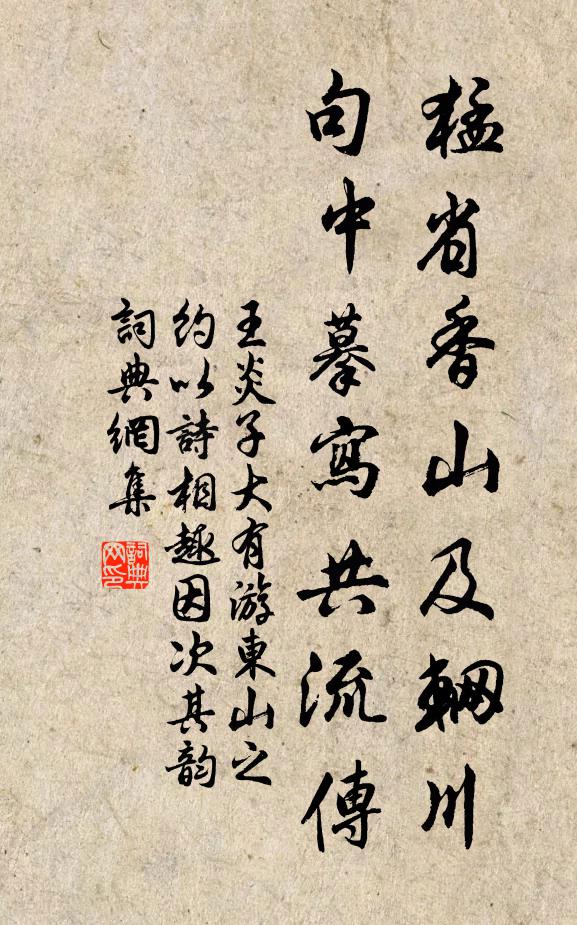 猛省香山及輞川
句中摹寫共流傳
王炎子大有游東山之
約以詩相趣因次其韵
詞典網集
詞典
网印